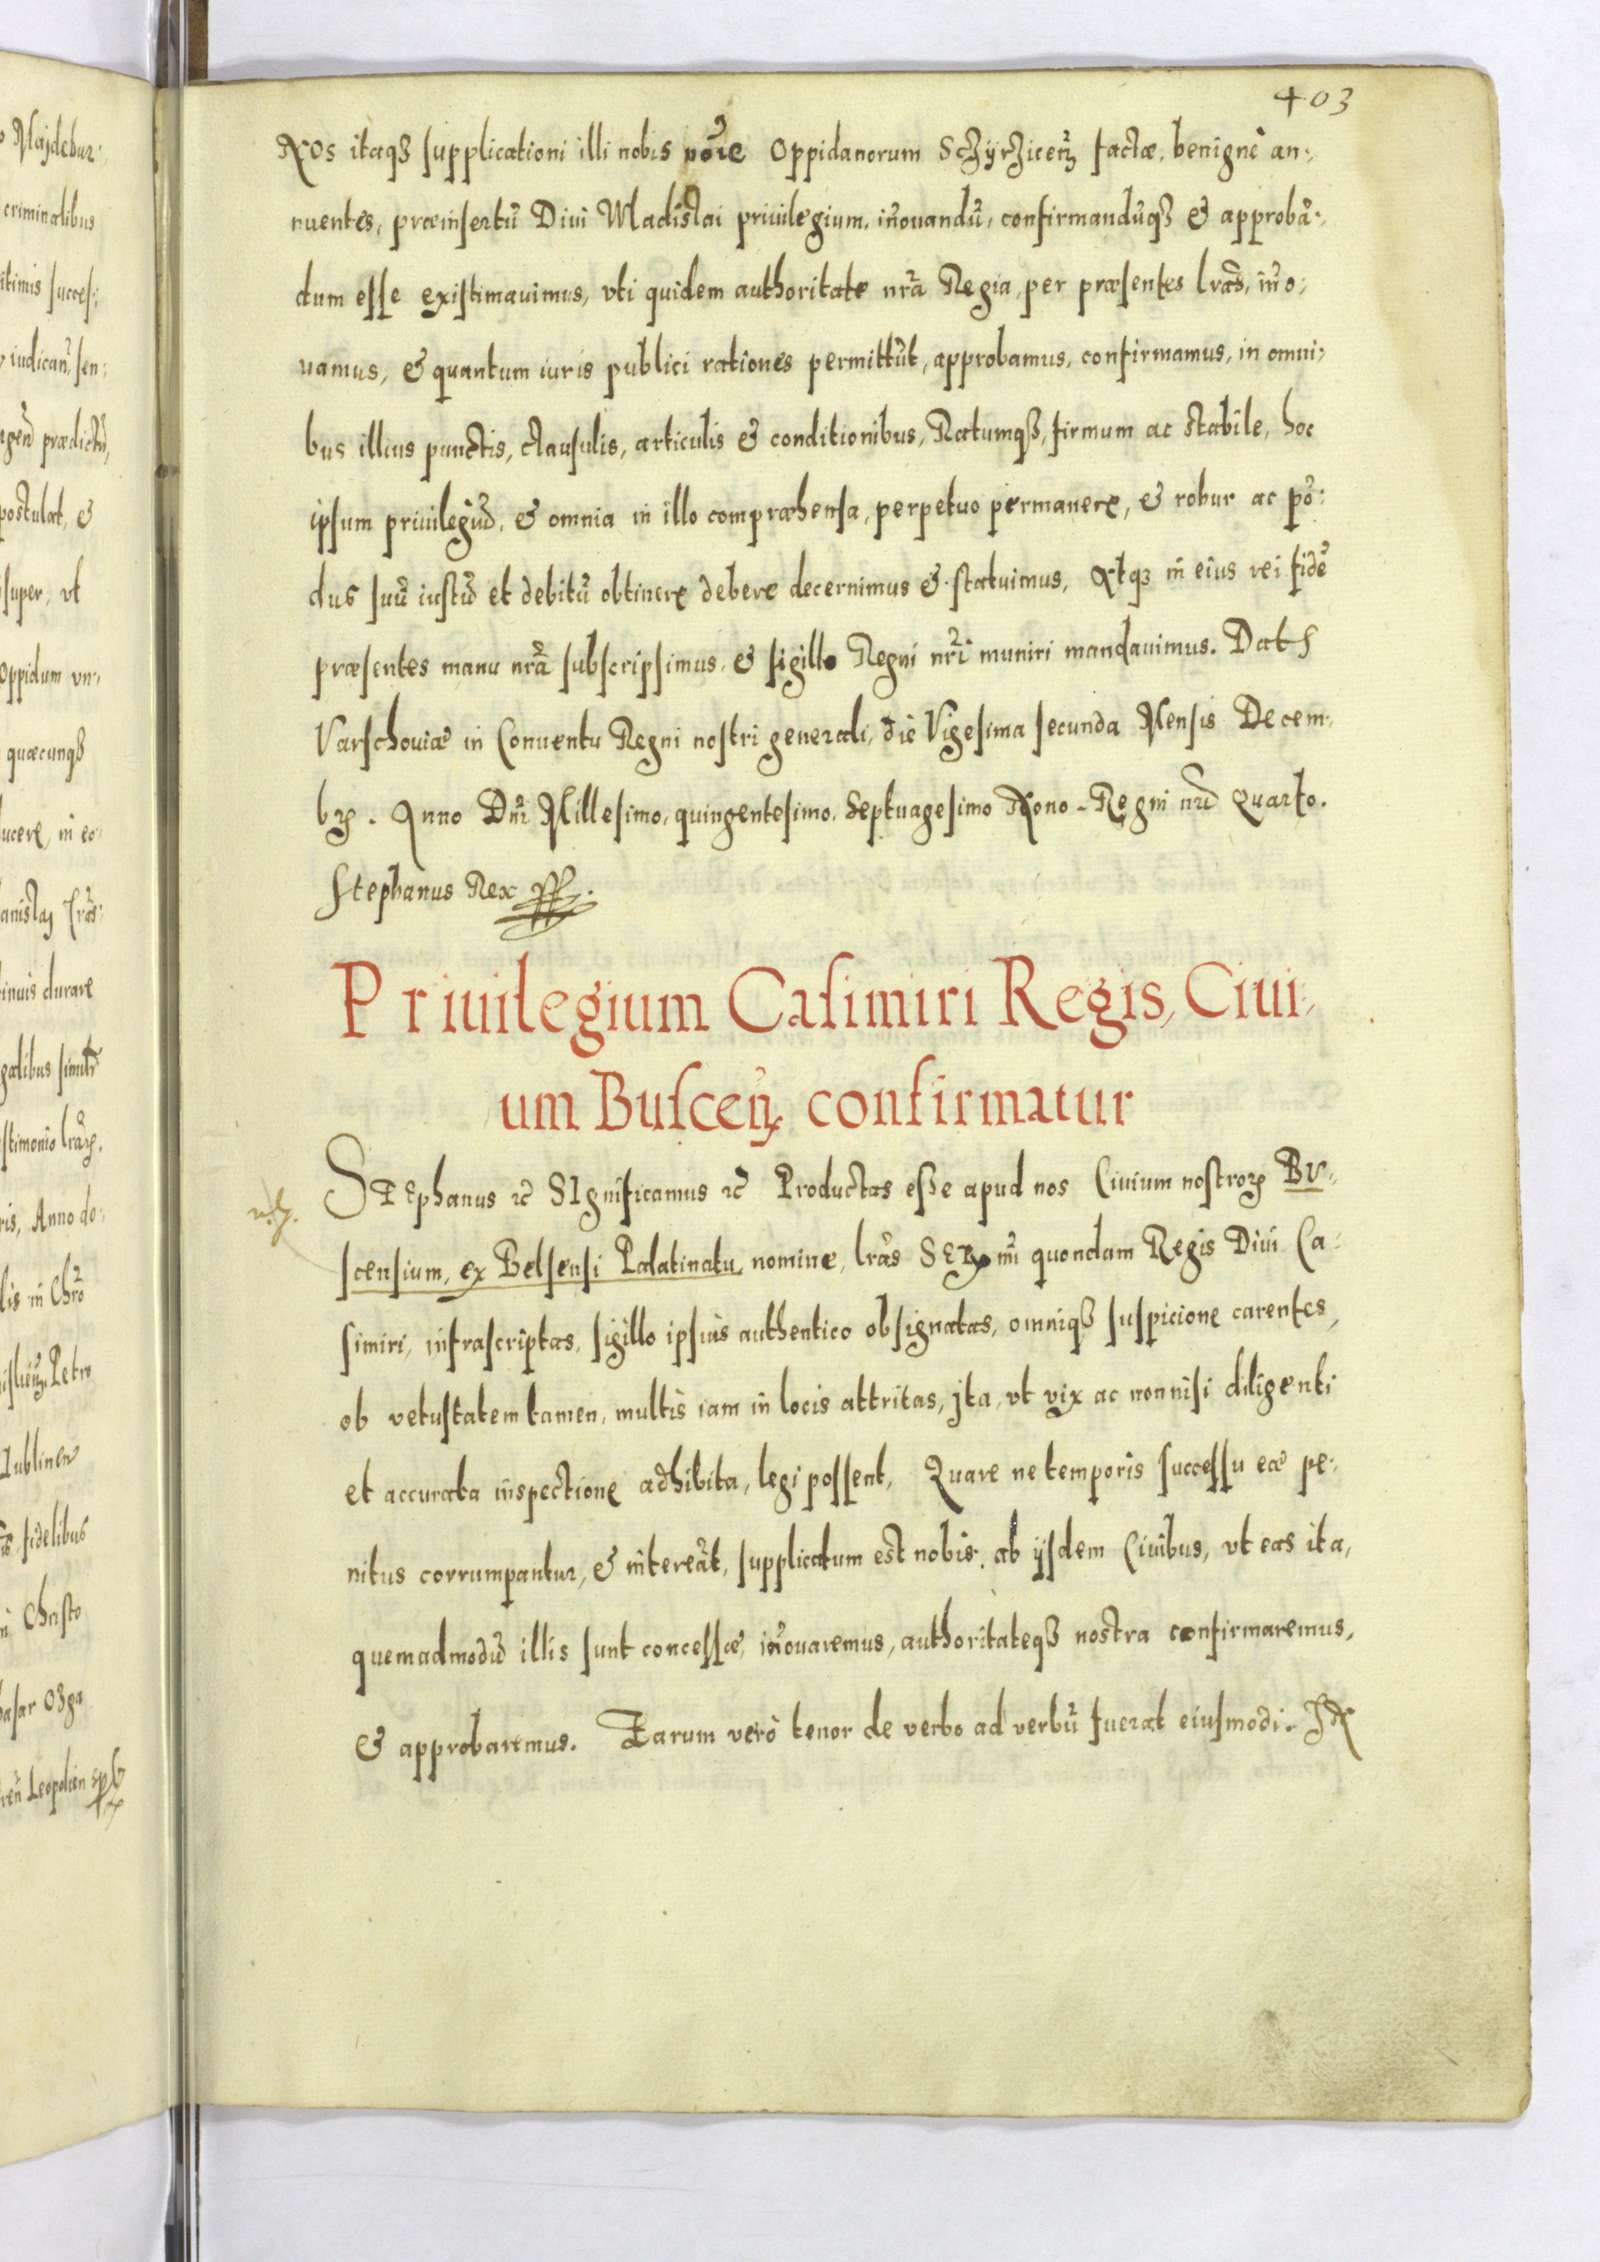 403
NOs itaqȝ supplicationi illi nobis noĩe Oppidanorum Sczyrzicen̄ factæ, benignè an-
nuentes, præinsertũ Diui Wladislai priuilegium, iñouandũ, confirmandũqȝ & approbã-
dum esse existimauimus, vti quidem authoritate nr̃a Regia, per præsentes lr̃as, iño-
uamus, & quantum iuris publici rationes permittũt, approbamus, confirmamus, in omni-
bus illius punctis, clausulis, articulis & conditionibus, Ratumqȝ, firmum ac stabile, hoc
ipsum priuilegiũ, & omnia in illo compræhensa, perpetuo permanere, & robur ac põ-
dus suũ iustũ et debitũ obtinere debere decernimus & statuimus, Atqȝ in eius rei fidẽ
præsentes manu nr̃a subscripsimus, & sigillo Regni nr̃i muniri mandauimus. Dat
Varschouiæ in Conuentu Regni nostri generali, die Vigesima secunda Mensis Decem-
bꝝ. Anno Dñi Millesimo, quingentesimo, Septuagesimo Nono - Regni nr̃i Quarto.
Stephanus Rex
Priuilegium Casimiri Regis, Ciui-
um Buscen̄ confirmatur
STEphanus ꝛc̃ SIgnificamus ꝛc̃ Productas esse apud nos Ciuium nostroꝝ BV-
scensium, ex Belsensi Palatinatu nomine, lr̃as SERmi quondam Regis Diui Ca-
simiri, infrascriptas, sigillo ipsius authentico obsignatas, omniqȝ suspicione carentes,
ob vetustatem tamen, multis iam in locis attritas, jta, vt vix ac non nisi diligenti
et accurata inspectione adhibita, legi possent, Quare ne temporis successu eæ pe-
nitus corrumpantur, & intereãt, supplicatum est nobis, ab ijsdem Ciuibus, vt eas ita,
quemadmodũ illis sunt concessæ, iñouaremus, authoritateqȝ nostra confirmaremus,
& approbaremus. Earum verò tenor de verbo ad verbũ fuerat eiusmodi. IN